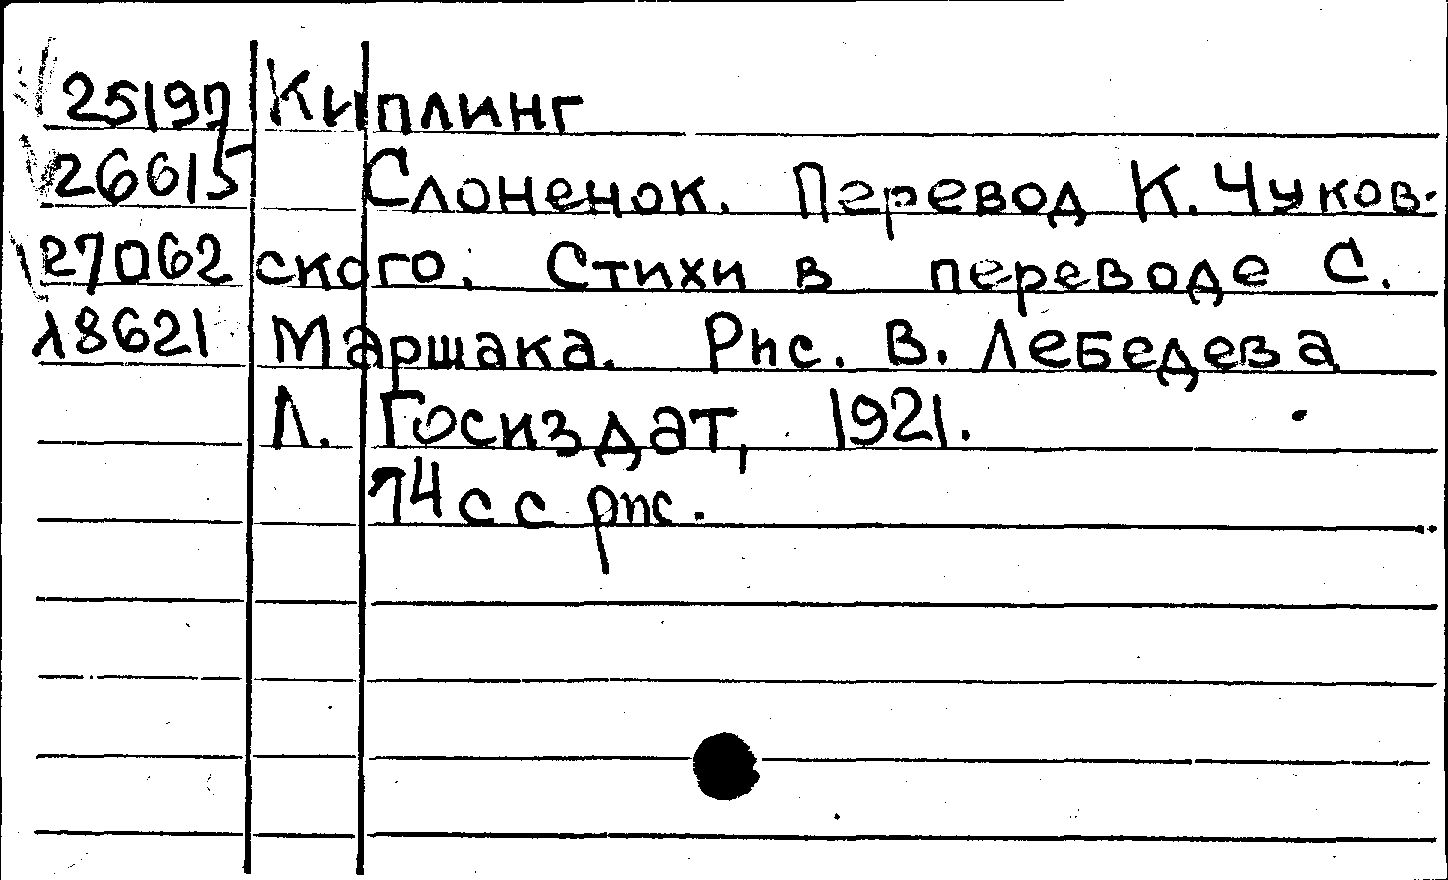 25197 Киплинг
26615 Слоненок. Перевод К. Чуков-
27062 ского. Стихи в переводе С.
18621 Маршака. Рис. В. Лебедева
Л. Госиздат, 1921.
14 с с рис.